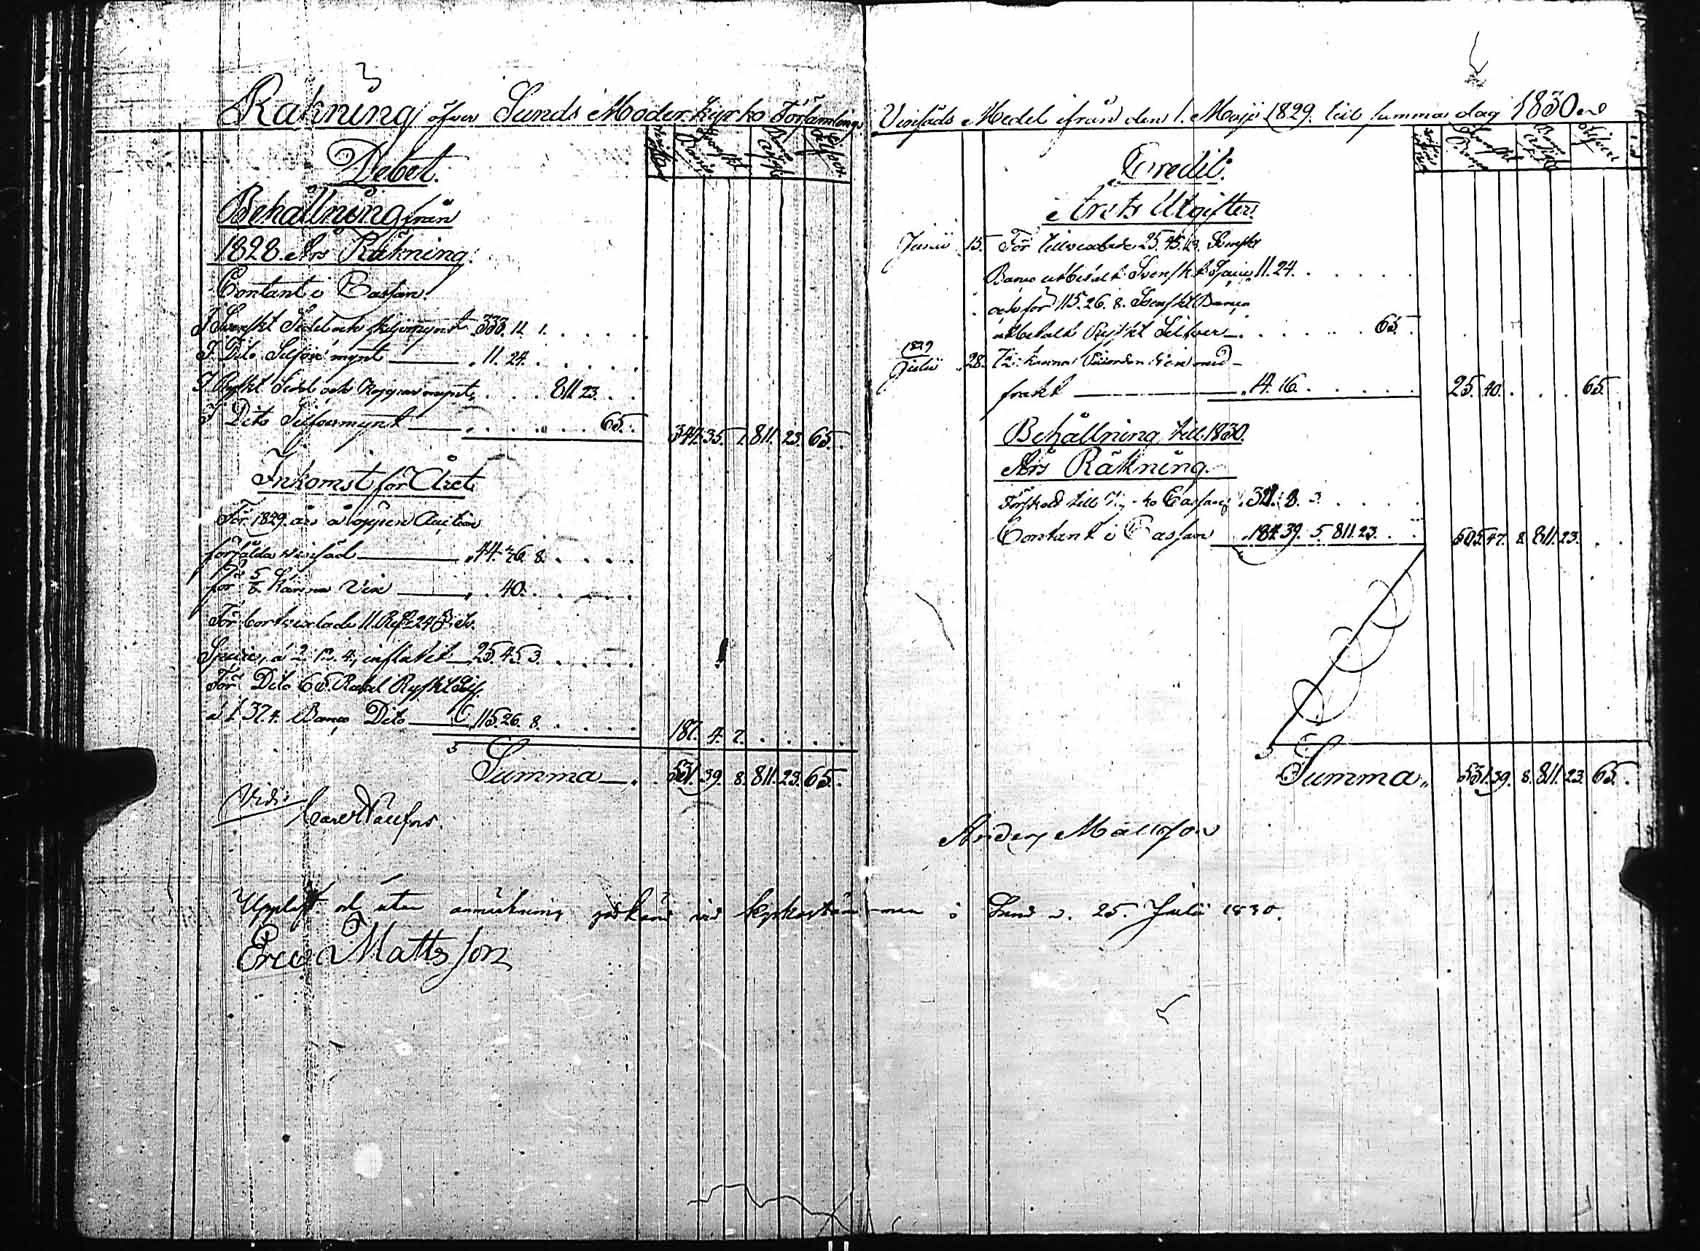 Räkning öfver Sunds Moderkyrko Församlings
Debet.
Behållning från
1828 Års Räkning.
Contant i Cassan.
I Svenskt Sedel och skiljemynt 333. 11. 1.
I Dito Silfver mynt 11. 24.
I Ryskt Sedel och Koppar mynt 811 23.
I Dito Silfvermynt 65.
344. 35. 1. 811. 23. 65.
Inkomst för Året
För 1829 års å öppen Auction
försålda vinsäd 44. 36. 8.
för 5/8 Kanna Vin 40.
För bortvexlade 11 24
Specie, á 2 4, influtit 25. 45 3.
För Dito 65 Rubel Ryskt Silf.
á 1. 37. 4. Banco Dito 115 26. 8.
187. 4. 7.
Summa 531. 39. 8. 811. 23. 65.
Vidi:
Upläst och utan anmärkning godkänd vid Kyrkostämman i Sund d. 25. Julii 1830.
Eric Mattsson
Vinsäds Medel ifrån den 1. Maji 1829. till samma dag 1830
Credit.
Årets Utgifter
Junii 15. För 25. 45. Svenskt
Banco utbetalt Svenskt Specie 11. 24.
och för 115. 26. 8. Svenskt Banco
utbetalt Ryskt Silfver 65.
1829
Julii 28. kanna
14. 16. 25. 40. 65.
Behållning till 1830.
Års Räkning.
Förskott till Cassan 321. 8. 3
Contant i Cassan 184. 39. 5. 811. 23. 505. 47. 8. 811. 23.
Summa 531. 39. 8. 811. 23. 65.
Anders Mattsson